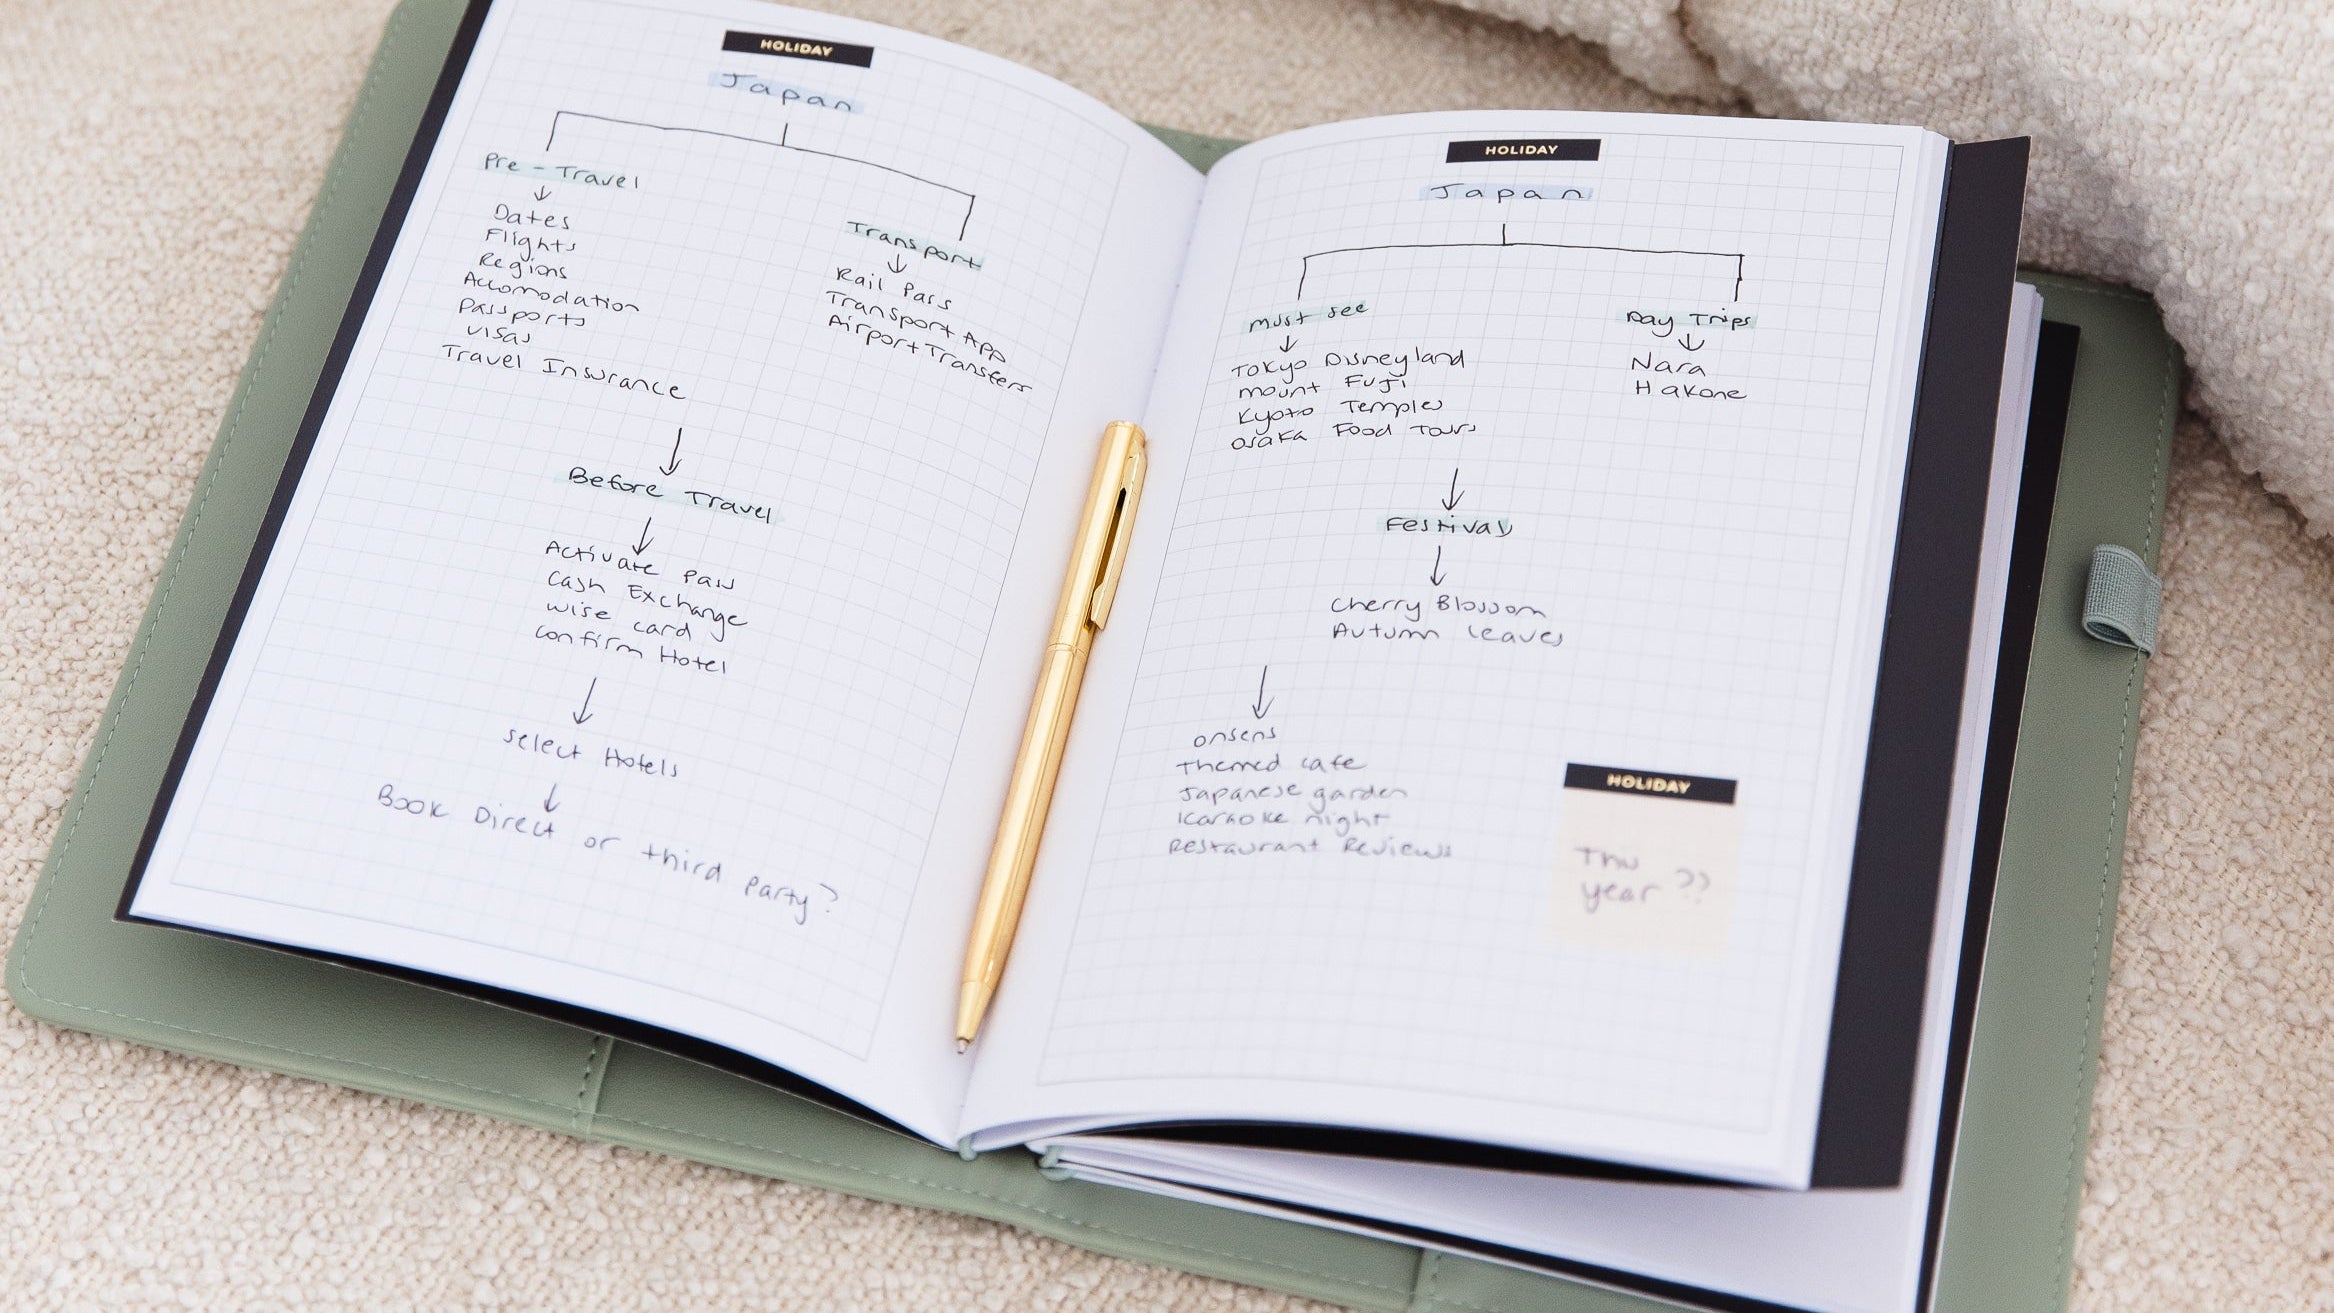 HOLIDAY
Japan
Pre-Travel
Dates
Flights
Regions
Accomodation
Passports
Visas
Travel Insurance
Transport
Rail Pass
Transport App
Airport Transfers
Before Travel
Activate Pass
Cash Exchange
Wise card
Confirm Hotel
Select Hotels
Book Direct or third party?
HOLIDAY
Japan
Must see
Tokyo Disneyland
Mount Fuji
Kyoto Temples
Osaka Food Tours
Day Trips
Nara
Hakone
Festivals
Cherry Blossom
Autumn Leaves
Onsens
Themed cafe
Japanese garden
Karaoke night
Restaurant Reviews
HOLIDAY
This
year ??